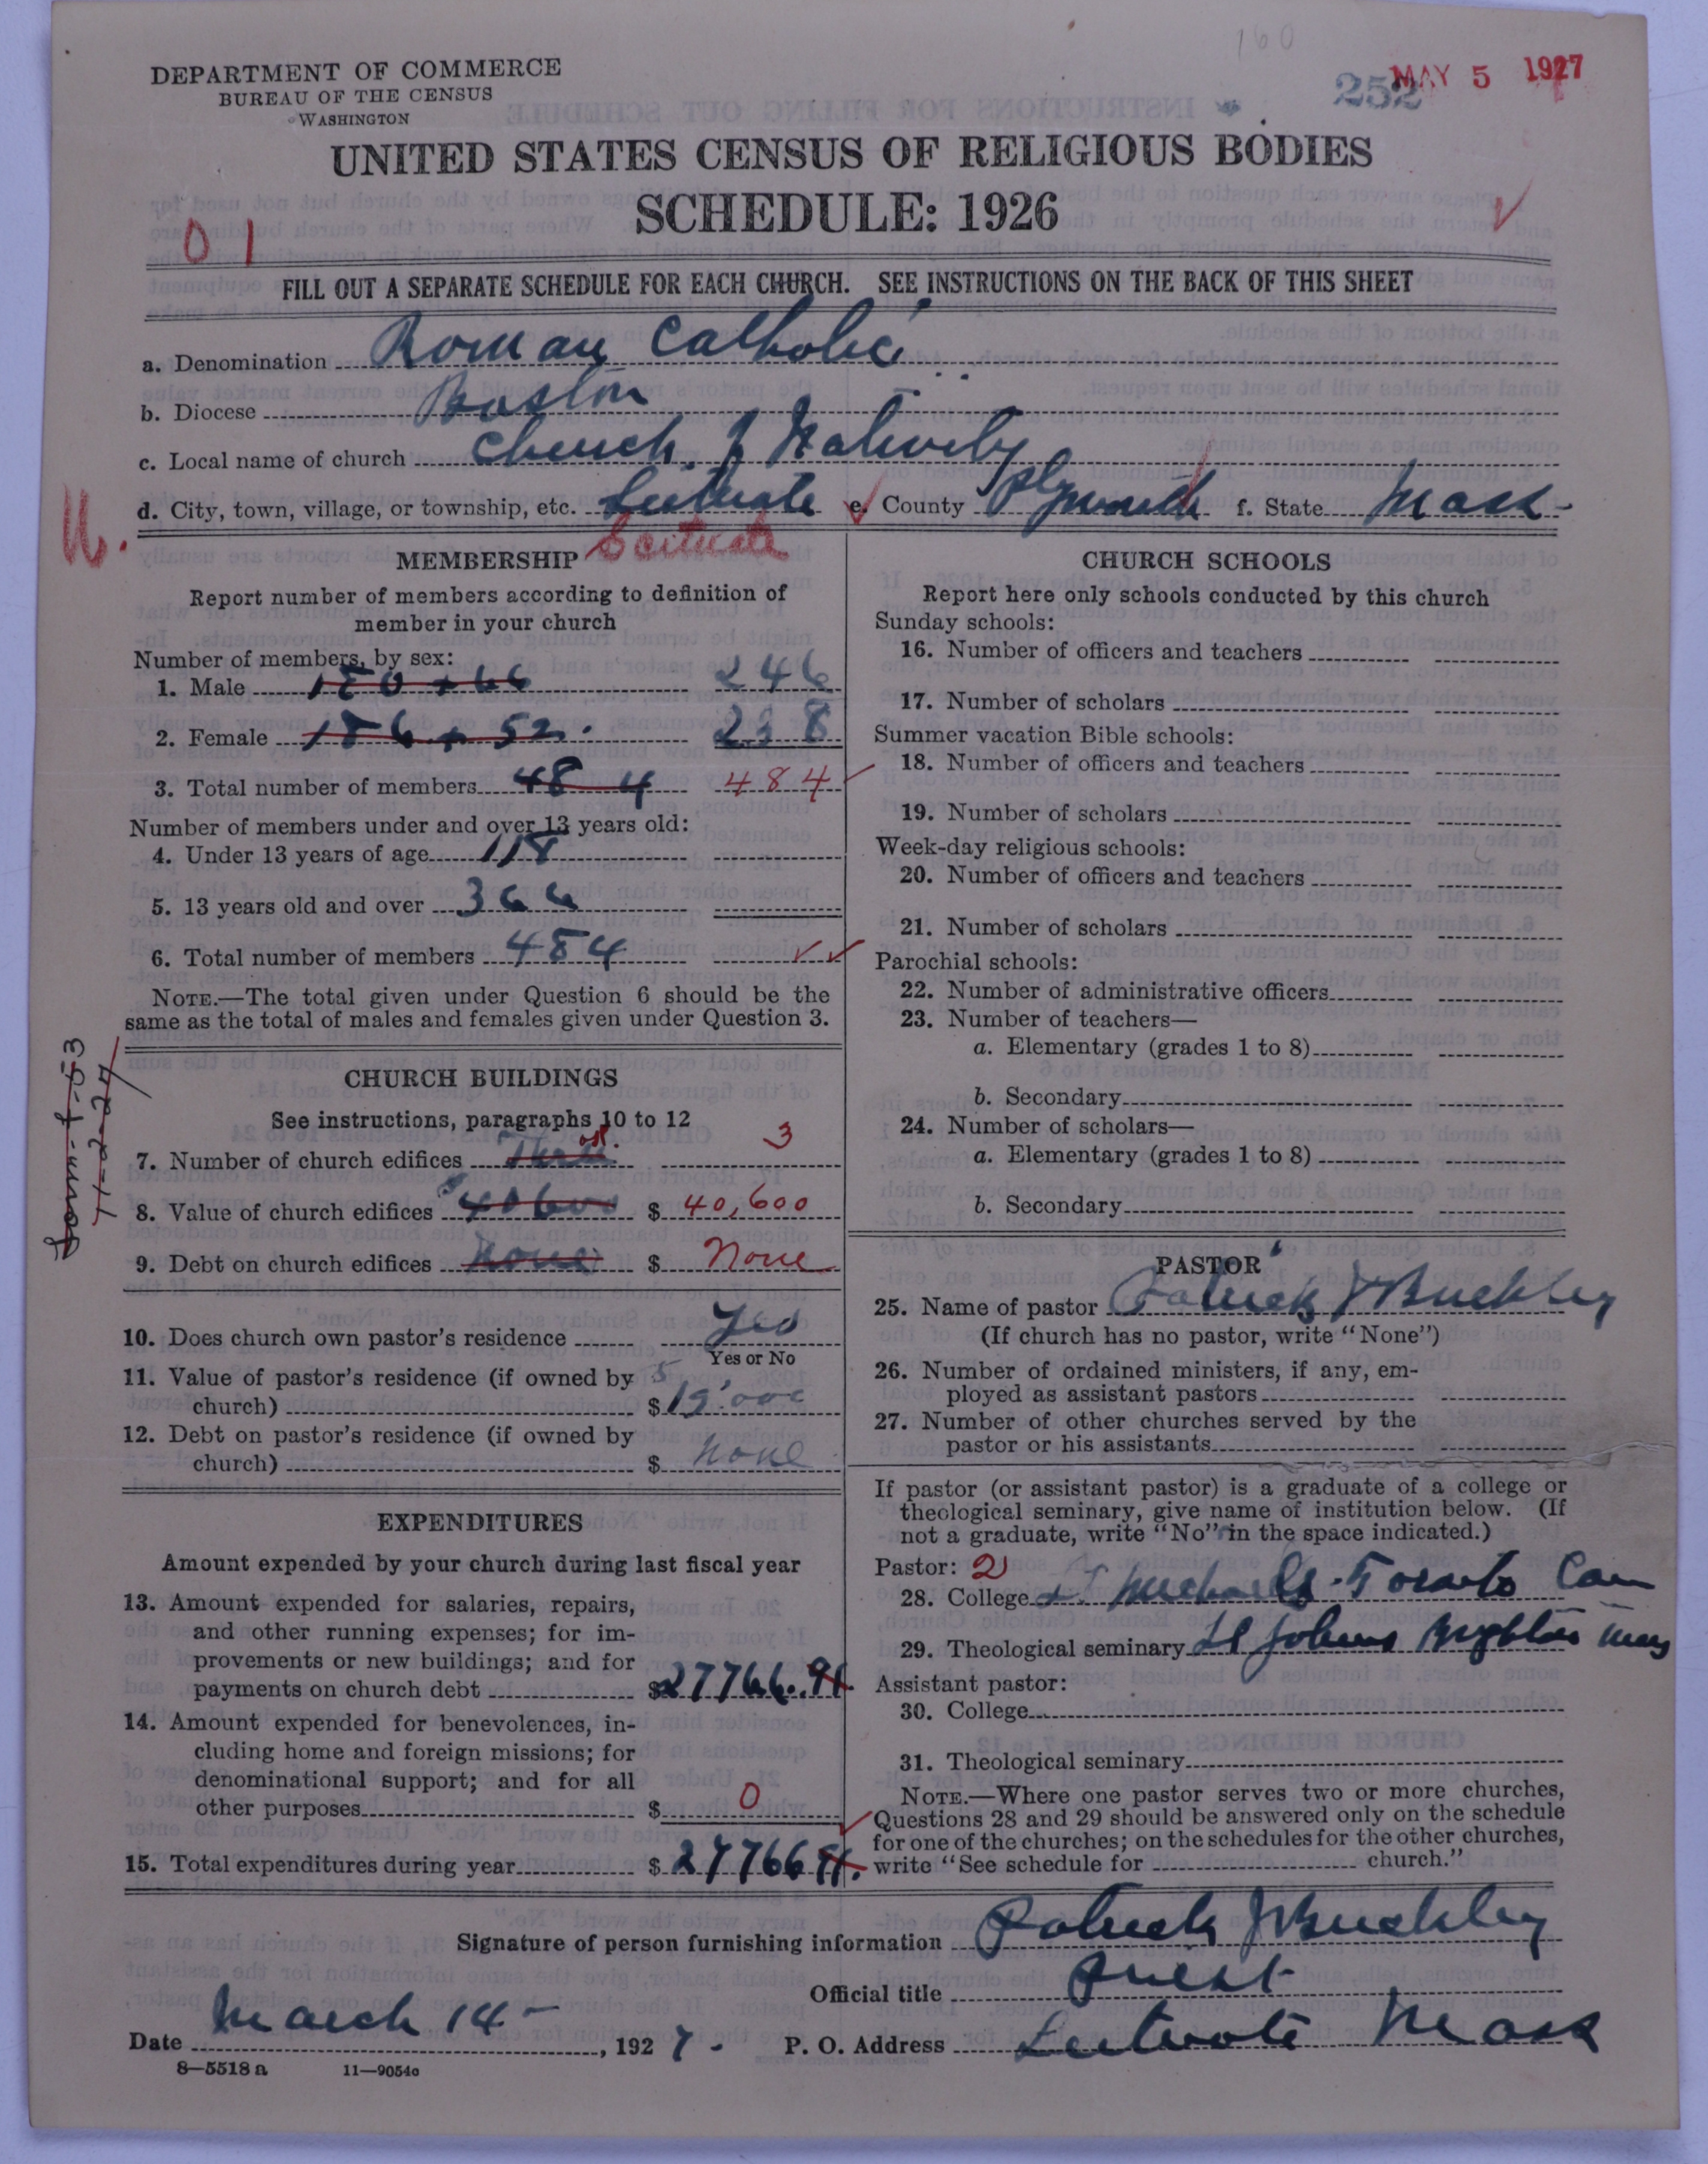 160
DEPARTMENT OF COMMERCE
BUREAU OF THE CENSUS
WASHINGTON
252 MAY 5 1927
UNITED STATES CENSUS OF RELIGIOUS BODIES
SCHEDULE: 1926
01
FILL OUT A SEPARATE SCHEDULE FOR EACH CHURCH. SEE INSTRUCTIONS ON THE BACK OF THIS SHEET
a. Denomination Roman Catholic
b. Diocese Boston
c. Local name of church Church of Nativity
d. City, town, village, or township, etc. Scituate e. County Plymouth f. State Mass
Scituate
MEMBERSHIP
Report number of members according to definition of
member in your church
Number of members, by sex:
1. Male 180 + 66 246
2. Female 186 + 52. 238
3. Total number of members 484 484
Number of members under and over 13 years old:
4. Under 13 years of age 118
5. 13 years old and over 366
6. Total number of members 484
NOTE.—The total given under Question 6 should be the
same as the total of males and females given under Question 3.
Form-f-53
11-2-27
CHURCH BUILDINGS
See instructions, paragraphs 10 to 12
7. Number of church edifices Three 3
8. Value of church edifices $40600 $ 40,600
9. Debt on church edifices None $ None
10. Does church own pastor's residence Yes
Yes or No
11. Value of pastor's residence (if owned by
church) $ 15,000
12. Debt on pastor's residence (if owned by
church) $ None
EXPENDITURES
Amount expended by your church during last fiscal year
13. Amount expended for salaries, repairs,
and other running expenses; for im-
provements or new buildings; and for
payments on church debt $27766.91
14. Amount expended for benevolences, in-
cluding home and foreign missions; for
denominational support; and for all
other purposes $ 0
15. Total expenditures during year $ 27766 91.
CHURCH SCHOOLS
Report here only schools conducted by this church
Sunday schools:
16. Number of officers and teachers
17. Number of scholars
Summer vacation Bible schools:
18. Number of officers and teachers
19. Number of scholars
Week-day religious schools:
20. Number of officers and teachers
21. Number of scholars
Parochial schools:
22. Number of administrative officers
23. Number of teachers—
a. Elementary (grades 1 to 8)
b. Secondary
24. Number of scholars—
a. Elementary (grades 1 to 8)
b. Secondary
PASTOR
25. Name of pastor Patrick J Buckley
(If church has no pastor, write "None")
26. Number of ordained ministers, if any, em-
ployed as assistant pastors
27. Number of other churches served by the
pastor or his assistants
If pastor (or assistant pastor) is a graduate of a college or
theological seminary, give name of institution below. (If
not a graduate, write "No" in the space indicated.)
Pastor: 2
28. College St Michaels-Toronto Can
29. Theological seminary St Johns Brighton Mass
Assistant pastor:
30. College
31. Theological seminary
NOTE.—Where one pastor serves two or more churches,
Questions 28 and 29 should be answered only on the schedule
for one of the churches; on the schedules for the other churches,
write "See schedule for church."
Signature of person furnishing information Patrick J Buckley
Official title Priest
Date March 14, 1927. P. O. Address Scituate Mass
8—5518 a 11—9054c